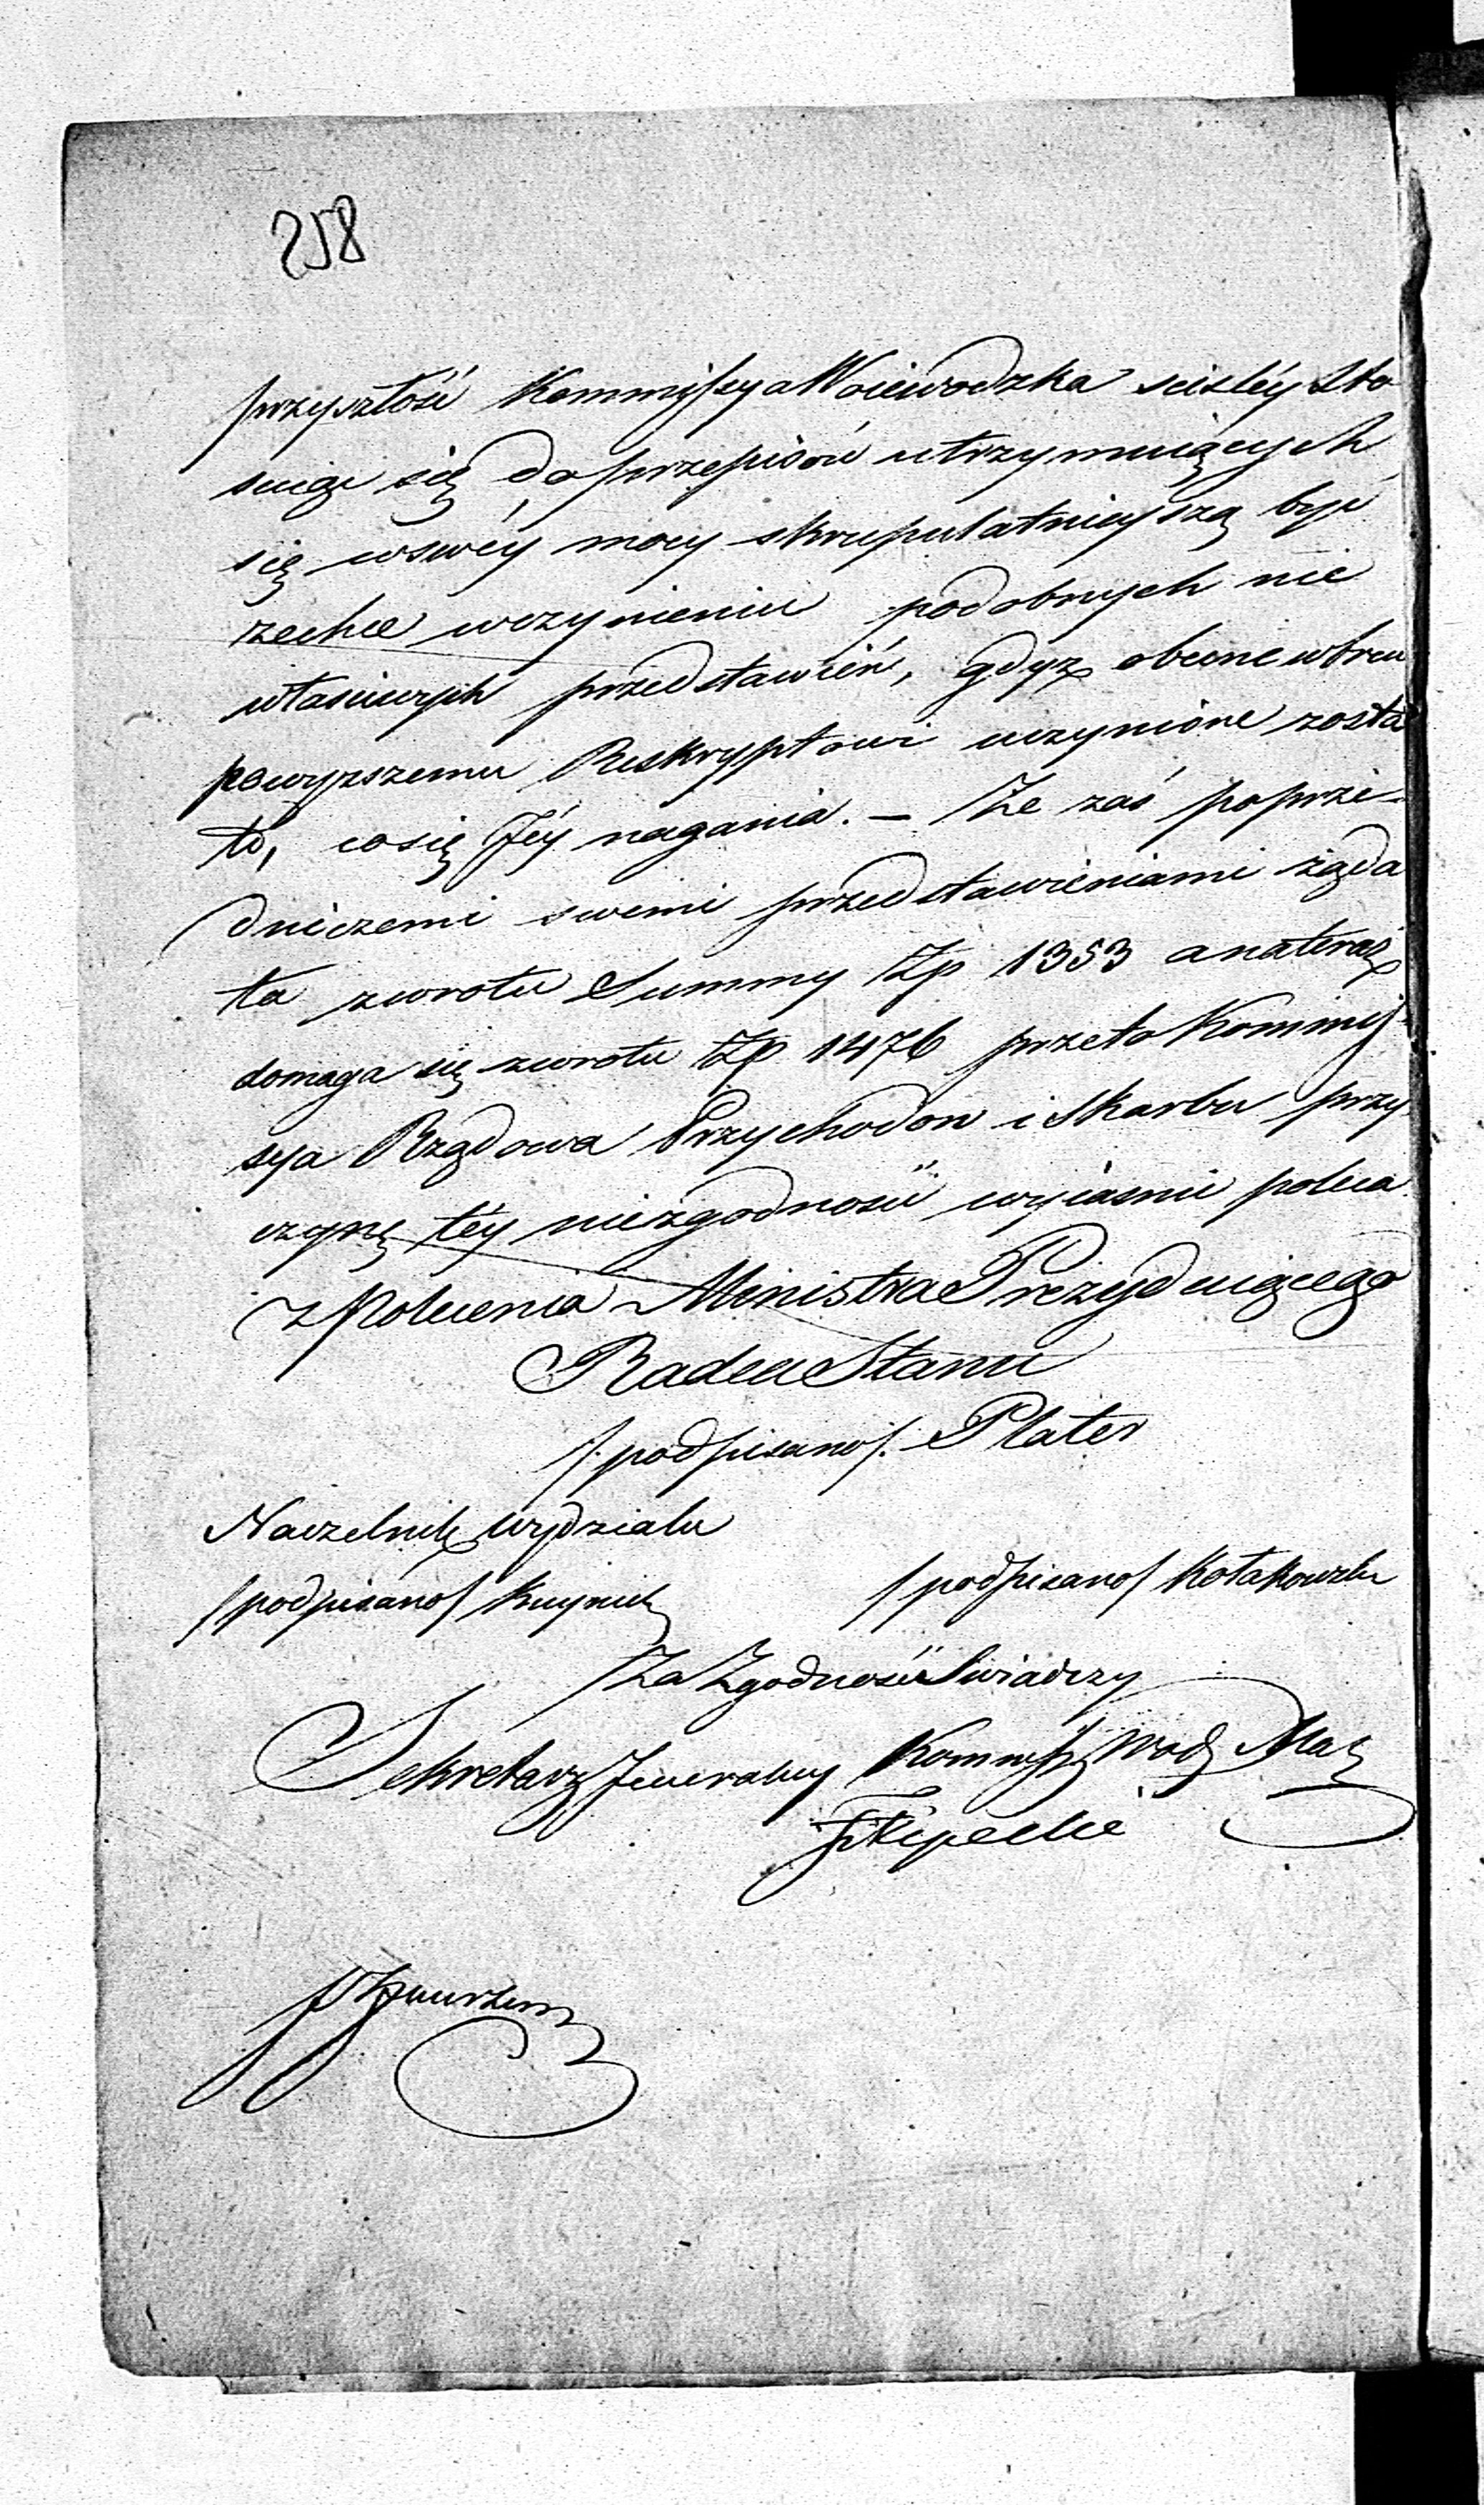 258
przyszłość Kommissya Woiewodzka scisléy sto
suiąc się do przepisów utrzymuiących
się wswéy mocy skrupulatnieyszą być
zechce wczynieniu podobnych nie
właściwych przedstawień, gdyż obecne wbrew
powyższemu Reskryptowi uczynione zosta
ło, co się Jéy nagania. – Że zaś poprze-
dniczemi swemi przedstawieniami żąda
ła zwrotu Summy Zp 1353 a nateraz
domaga się zwrotu Zp 1476 przeto Kommis-
sya Rządowa Przychodow i Skarbu przy
czynę téy niezgodności wyiaśnić poleca
z Polecenia Ministra Prezyduiącego
Radca Stanu
/podpisano/ Plater
Naczelnik wydziału
/podpisano/ /podpisano/ Kołakowski
Za Zgodność Swiadczy
Sekretarz Jeneralny Kommiss Wodz Maz
Filipecki